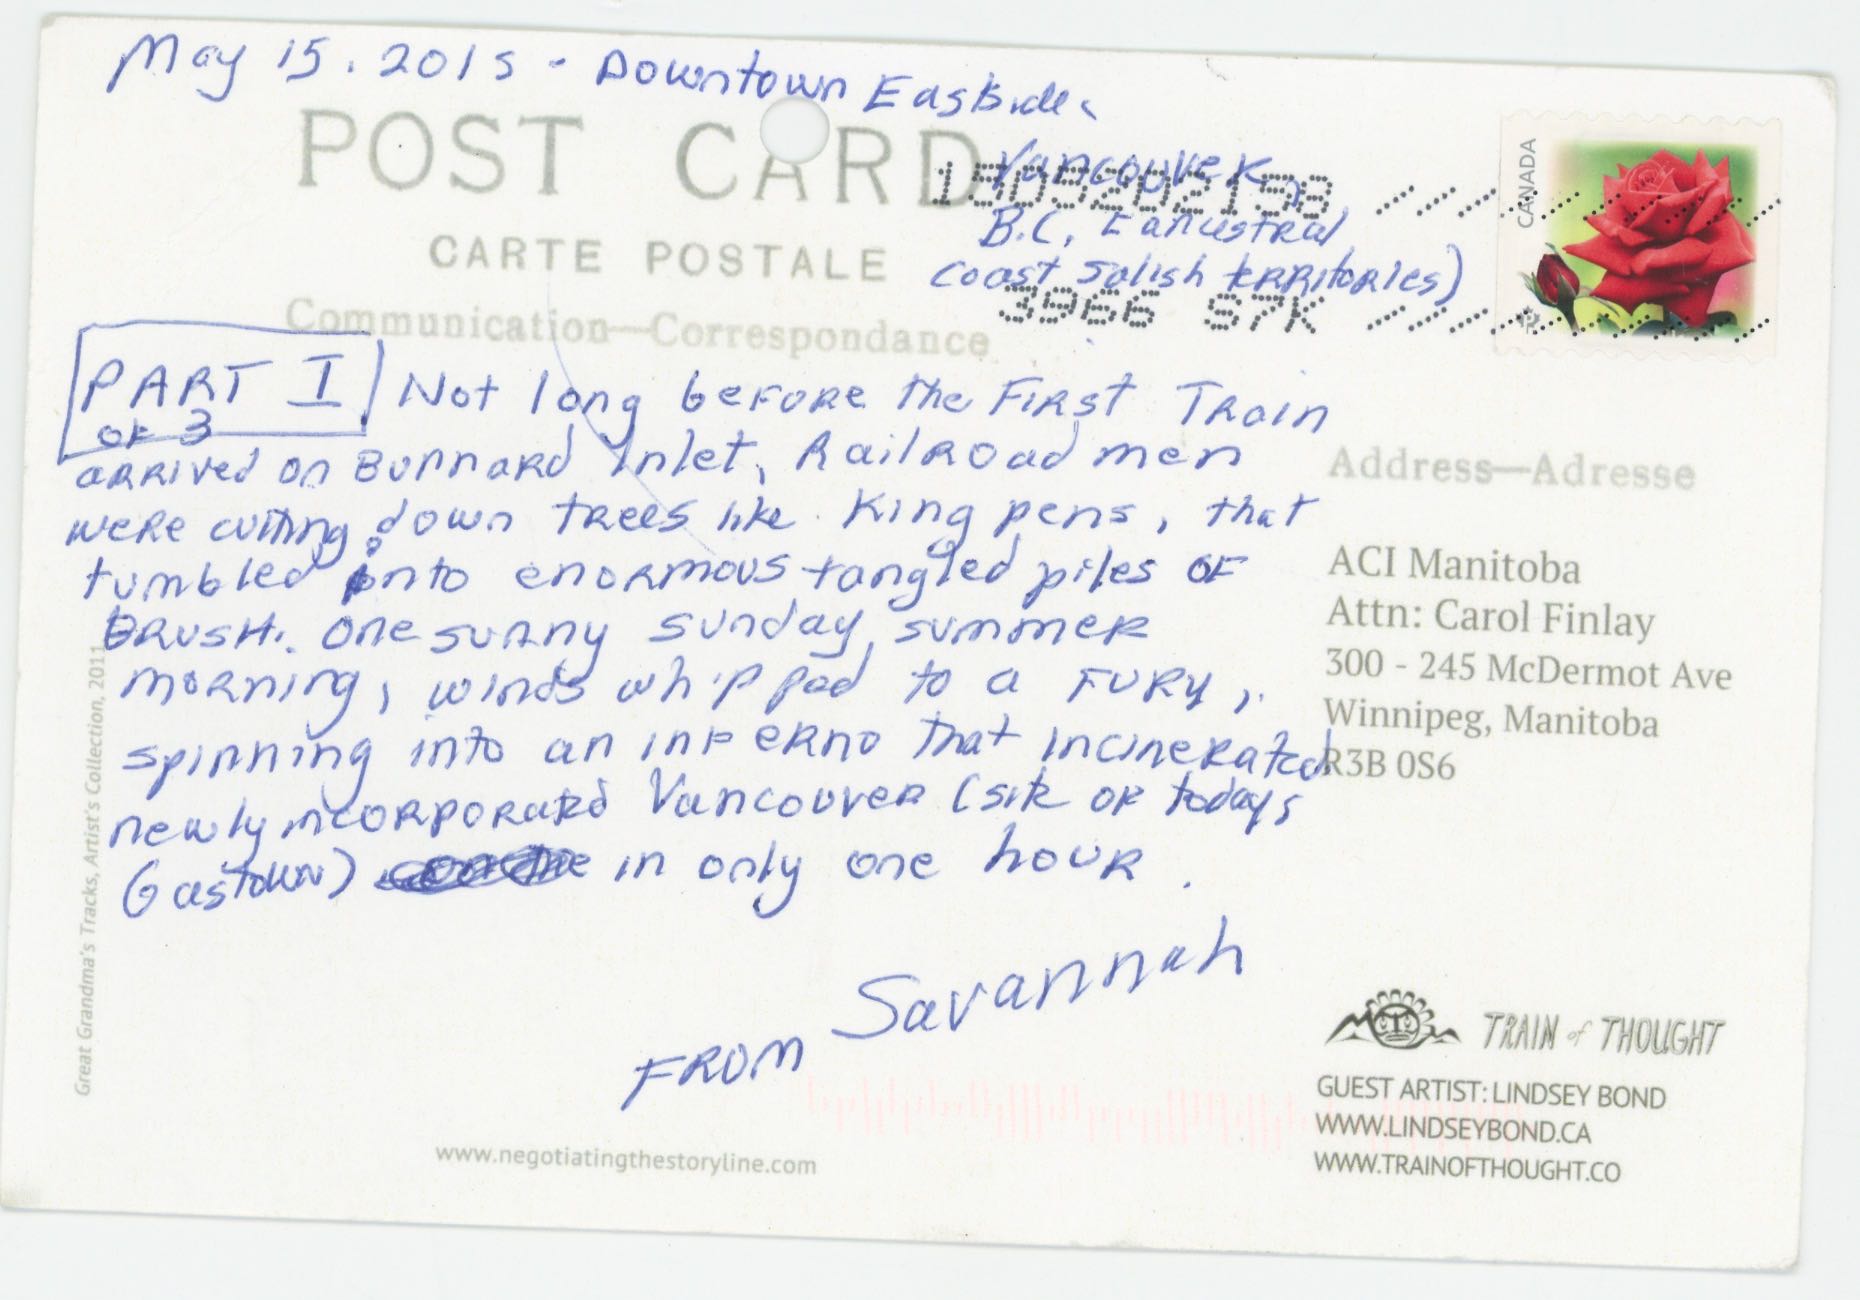 May 15. 2015 - Downtown Eastside,
Vancouver,
B.C. (ancestral
coast salish territories)
POST CARD
CARTE POSTALE
Communication—Correspondance
15052021598
3966 S7K
CANADA
P
PART I
OF 3
Not long before the First Train
arrived on Burrard Inlet, Railroad men
were cutting down trees like King pens, that
tumbled onto enormous tangled piles of
BRUSH. One sunny sunday, summer
morning, winds whipped to a FURY,
spinning into an inferno that incinerated
newly incorporated Vancouver (site of todays
Gastown) in only one hour.
FROM Savannah
Address—Adresse
ACI Manitoba
Attn: Carol Finlay
300 - 245 McDermot Ave
Winnipeg, Manitoba
R3B 0S6
Great Grandma's Tracks, Artist's Collection, 2011
www.negotiatingthestoryline.com
TRAIN of THOUGHT
GUEST ARTIST: LINDSEY BOND
WWW.LINDSEYBOND.CA
WWW.TRAINOFTHOUGHT.CO